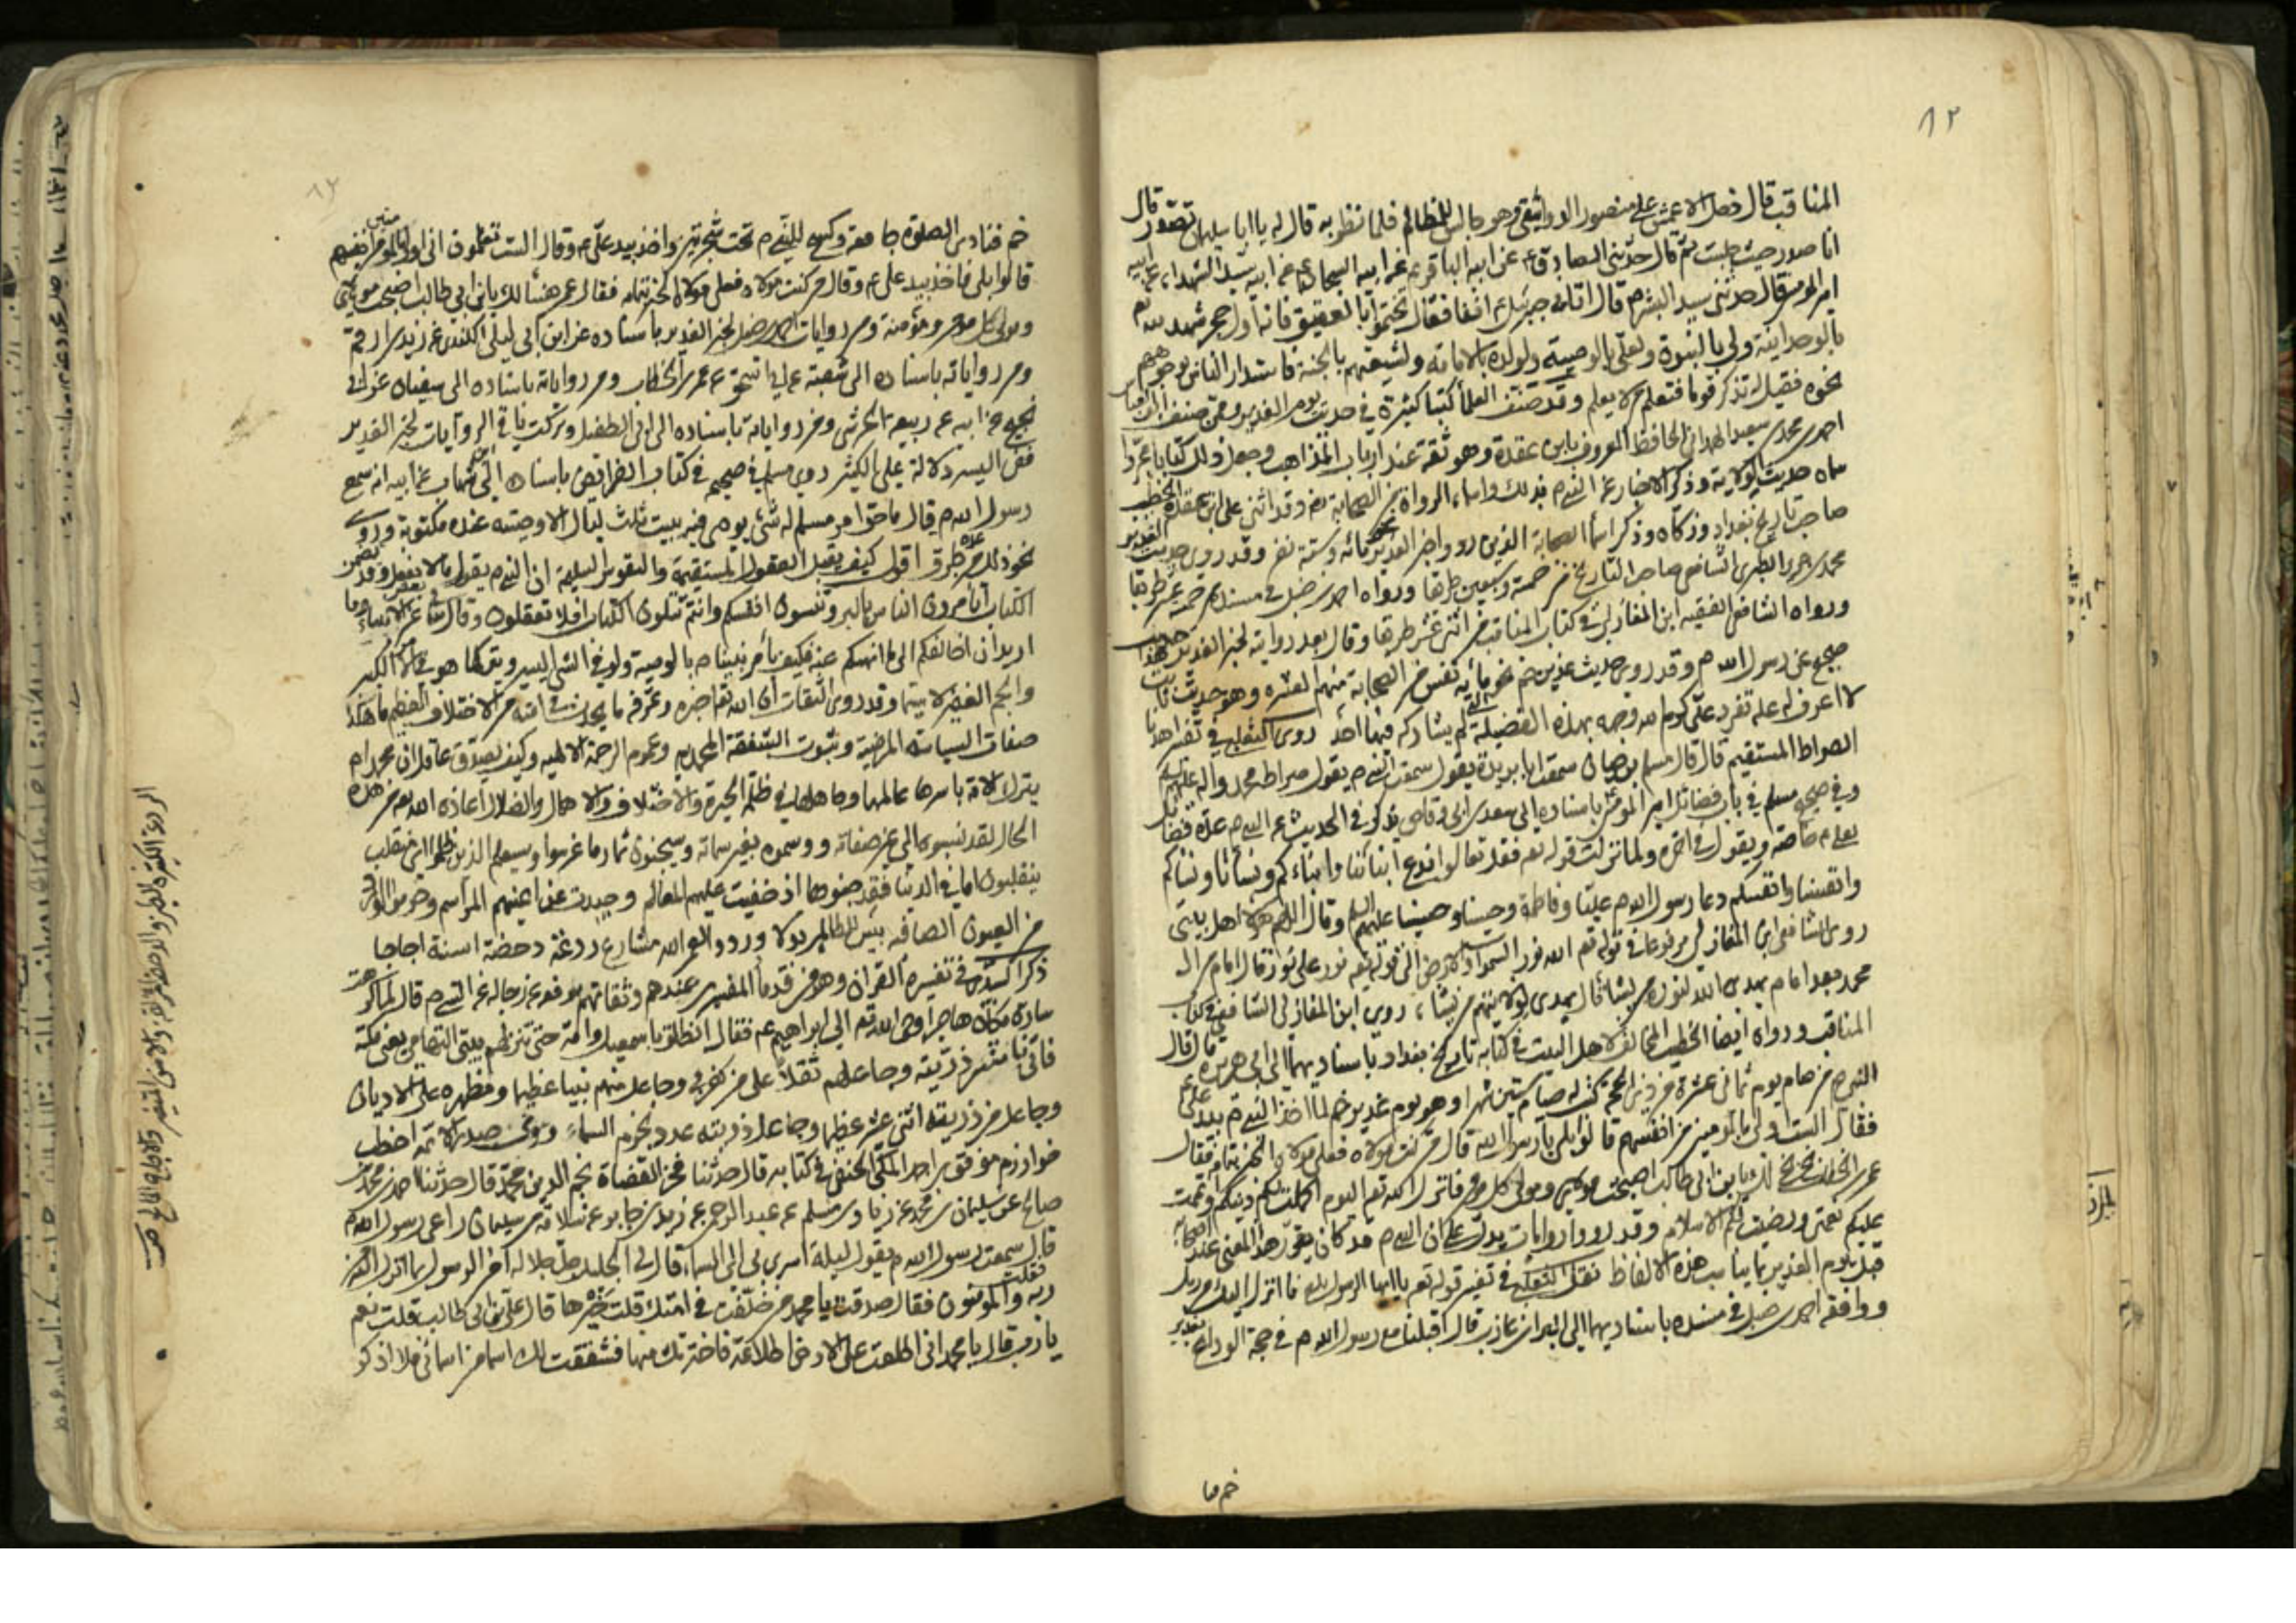 ٨٢
المناقب قال دخل الاعمش على منصور الدوانيقى وهو جالس للمظالم فلما نظر به قال له يا ابا سليمان تصدّر قال
انا صدر حيث جلست ثم قال حدثنى الصادق ع عن ابيه الباقر ع عن ابيه السجاد ع عن ابيه سيد الشهداء عن ابيه
امير المومنين قال حدثنى سيد البشر م قال اتانى جبرئيل ع انفا فقال تختموا بالعقيق فانه اول حجر شهد لله تع
بالوحدانية ولى بالنبوة ولعلى بالوصية ولولده بالامامة ولشيعتهم بالجنة فاستدار الناس بوجوههم
نحوه فقيل له تذكر قوما فتعلم من لا يعلم وقد صنف العلماء كتبا كثيرة فى حديث يوم الغدير وممن صنف
احمد بن محمد بن سعيد الهمدانى الحافظ المعروف بابن عقدة وهو ثقة عند ارباب المذاهب وجعل ذلك كتابا مجردا
سماه حديث الولاية وذكر الاخبار عن النبى م بذلك واسماء الرواة من الصحابة وقد اثنى على ابن عقدة الخطيب
صاحب تاريخ بغداد وزكاه وذكر اسماء الصحابة الذين رووا خبر الغدير نحو مائه وستة نفر وقد روى حديث الغدير
محمد بن جرير الطبرى الشافعى صاحب التاريخ من خمسة وسبعين طريقا ورواه احمد بن حنبل فى مسنده من خمسة عشر طريقا
ورواه الشافعى الفقيه ابن المغازلى فى كتاب المناقب من اثنى عشر طريقا وقال بعد رواية لخبر الغدير هذا حديث
صحيح عن رسول الله م وقد روى حديث غدير خم نحو مائه نفس من الصحابة منهم العشره وهو حديث ثابت
لا اعرف له علة تفرد على كرم الله وجهه بهذه الفضيلة لم يشاركه فيها احد روى الثعلبى فى تفسير اهدنا
الصراط المستقيم قال قال مسلم بن حيان سمعت ابا بريدة يقول سمعت النبى م يقول صراط محمد واله عليهم
وفى صحيح مسلم فى باب فضائل امير المومنين باسناده الى سعد بن ابى وقاص يذكر فى الحديث عن النبى م عدة فضائل
لعلى ع خاصة ويقول فى اخره ولما نزلت قوله تع فقل تعالوا ندع ابنائنا وابناءكم ونسائنا ونسائكم
وانفسنا وانفسكم دعا رسول الله م عليا وفاطمة وحسنا وحسينا عليهم السلم وقال اللهم هؤلاء اهل بيتى
روى الشافعى ابن المغازلى مرفوعا فى قوله تع الله نور السموات والارض الى قوله تع نور على نور قال امام من ال
محمد بعد امام يهدى الله لنوره من يشاء قال يهدى لولايتهم من يشاء روى ابن المغازلى الشافعى فى كتاب
المناقب ورواه ايضا الخطيب المخالف لاهل البيت فى كتابه تاريخ بغداد باسناديهما الى ابى هريره قال قال
النبى م من صام يوم ثمانى عشرة من ذى الحجة كتب له صيام ستين شهرا وهو يوم غدير خم لما اخذ النبى م بيد على ع
فقال الست اولى بالمومنين من انفسهم قالوا بلى يا رسول الله قال من كنت مولاه فعلى مولاه الخبر بتمامه فقال
عمر بن الخطاب بخ بخ لك يابن ابى طالب اصبحت مولاى ومولى كل مومن فانزل الله تع اليوم اكملت لكم دينكم واتممت
عليكم نعمتى ورضيت لكم الاسلام وقد رووا روايات يدل على ان النبى م قد كان يقرر هذا المعنى عند اصحابه
قبل يوم الغدير بما يناسب هذه الالفاظ نقل الثعلبى فى تفسير قوله تع يا ايها الرسول بلغ ما انزل اليك من ربك
ووافقه احمد بن حنبل فى مسنده باسناديهما الى البراء بن عازب قال اقبلنا مع رسول الله م فى حجة الوداع بغدير
خم فنا
خم فنادى الصلوة جامعة وكسح للنبى م تحت شجرتين واخذ بيد على ع وقال الستم تعلمون انى اولى بالمومنين من انفسهم
قالوا بلى فاخذ بيد على ع وقال من كنت مولاه فعلى مولاه الخبر بتمامه فقال عمر هنيئا لك يا ابن ابى طالب اصبحت مولاى
ومولى كل مومن ومؤمنة ومن روايات احمد بن حنبل لخبر الغدير باسناده عن ابن ابى ليلى الكندى عن زيد بن ارقم
ومن رواياته باسناده الى شعبة عن ابى اسحق عن عمر بن الخطاب ومن رواياته باسناده الى سفيان عن ابى
نجيح عن ابيه عن ربيعه الجرشى ومن رواياته باسناده الى ابى الطفيل وتركت باقى الروايات لخبر الغدير
ففى اليسير دلالة على الكثير روى مسلم فى صحيحه فى كتاب الفرائض باسناده الى ابن شهاب عن ابيه انه سمع
رسول الله م قال ما حق امرء مسلم له شئ يوصى فيه يبيت ثلث ليال الا وصيته عنده مكتوبة وروى
نحو ذلك من عدة طرق اقول كيف يقبل العقول المستقيمة والنفوس السليمة ان النبى م يقول ما لا يفعل وقد تضمن
الكتاب اتامرون الناس بالبر وتنسون انفسكم وانتم تتلون الكتاب افلا تعقلون وقال تعالى عن بعض الانبياء وما
اريد ان اخالفكم الى ما انهيكم عنه فكيف يأمر نبينا م بالوصية ولو فى الشئ اليسير ويتركها هو فى الامر الكبير
والجم الغفير لا سيما وقد روى الثقات ان الله تع اخبره وعرفه ما يحدث فى امته من الاختلاف العظيم ما هكذا
صفات السياسة المرضية وثبوت الشفقة المحمدية وعموم الرحمة الالهيه وكيف يصدق عاقل ان محمدا م
يترك الامة باسرها عالمها وجاهلها فى ظلم الحيرة والاختلاف والاهمال والضلال اعاذه الله تع من هذه
الحال لقد نسبوه الى غير صفاته ووسموه بغير سماته وسيجنون ثمار ما غرسوا وسيعلم الذين ظلموا اى منقلب
ينقلبون اما فى الدنيا فقد جنوها اذ خفيت عليهم المعالم وجددت عن اعينهم المراسم وحرموا الورود
من العيون الصافيه بئس للظالمين بدلا وردوا لعمر الله مشارع ردغة دحضة اسنة اجاجا
ذكر السدى فى تفسيره القران وهو من قدماء المفسرين عندهم وثقاتهم يرفعه عن رجاله عن النبى م قال لما كرهت
سارة مكان هاجر اوحى الله تع الى ابراهيم ع فقال انطلق باسمعيل وامه حتى تنزلهم بيتى التهامى يعنى مكة
فانى ناشر ذريته وجاعلهم ثقلا على من كفر بى وجاعل منهم نبيا عظيما ومظهره على الاديان
وجاعل من ذريته اثنى عشر عظيما وجاعل ذريته عدد نجوم السماء وروى صدر الائمه اخطب
خوارزم موفق بن احمد المكى الحنفى فى كتابه قال حدثنا فخر القضاة نجم الدين محمد قال حدثنا احمد بن محمد بن
صالح عن سليمان بن محمد عن زياد بن مسلم عن عبد الرحمن عن زيد بن جابر عن سلامة بن سليمان راعى رسول الله م
قال سمعت رسول الله م يقول ليلة اسرى بى الى السماء قال لى الجليل جل جلاله امن الرسول بما انزل اليه من
ربه فقلت والمؤمنون فقال صدقت يا محمد من خلفت فى امتك قلت خيرها قال على بن ابى طالب قلت نعم
يا رب قال يا محمد انى اطلعت على الارض اطلاعة فاخترتك منها فشققت لك اسما من اسمائى فلا اذكر